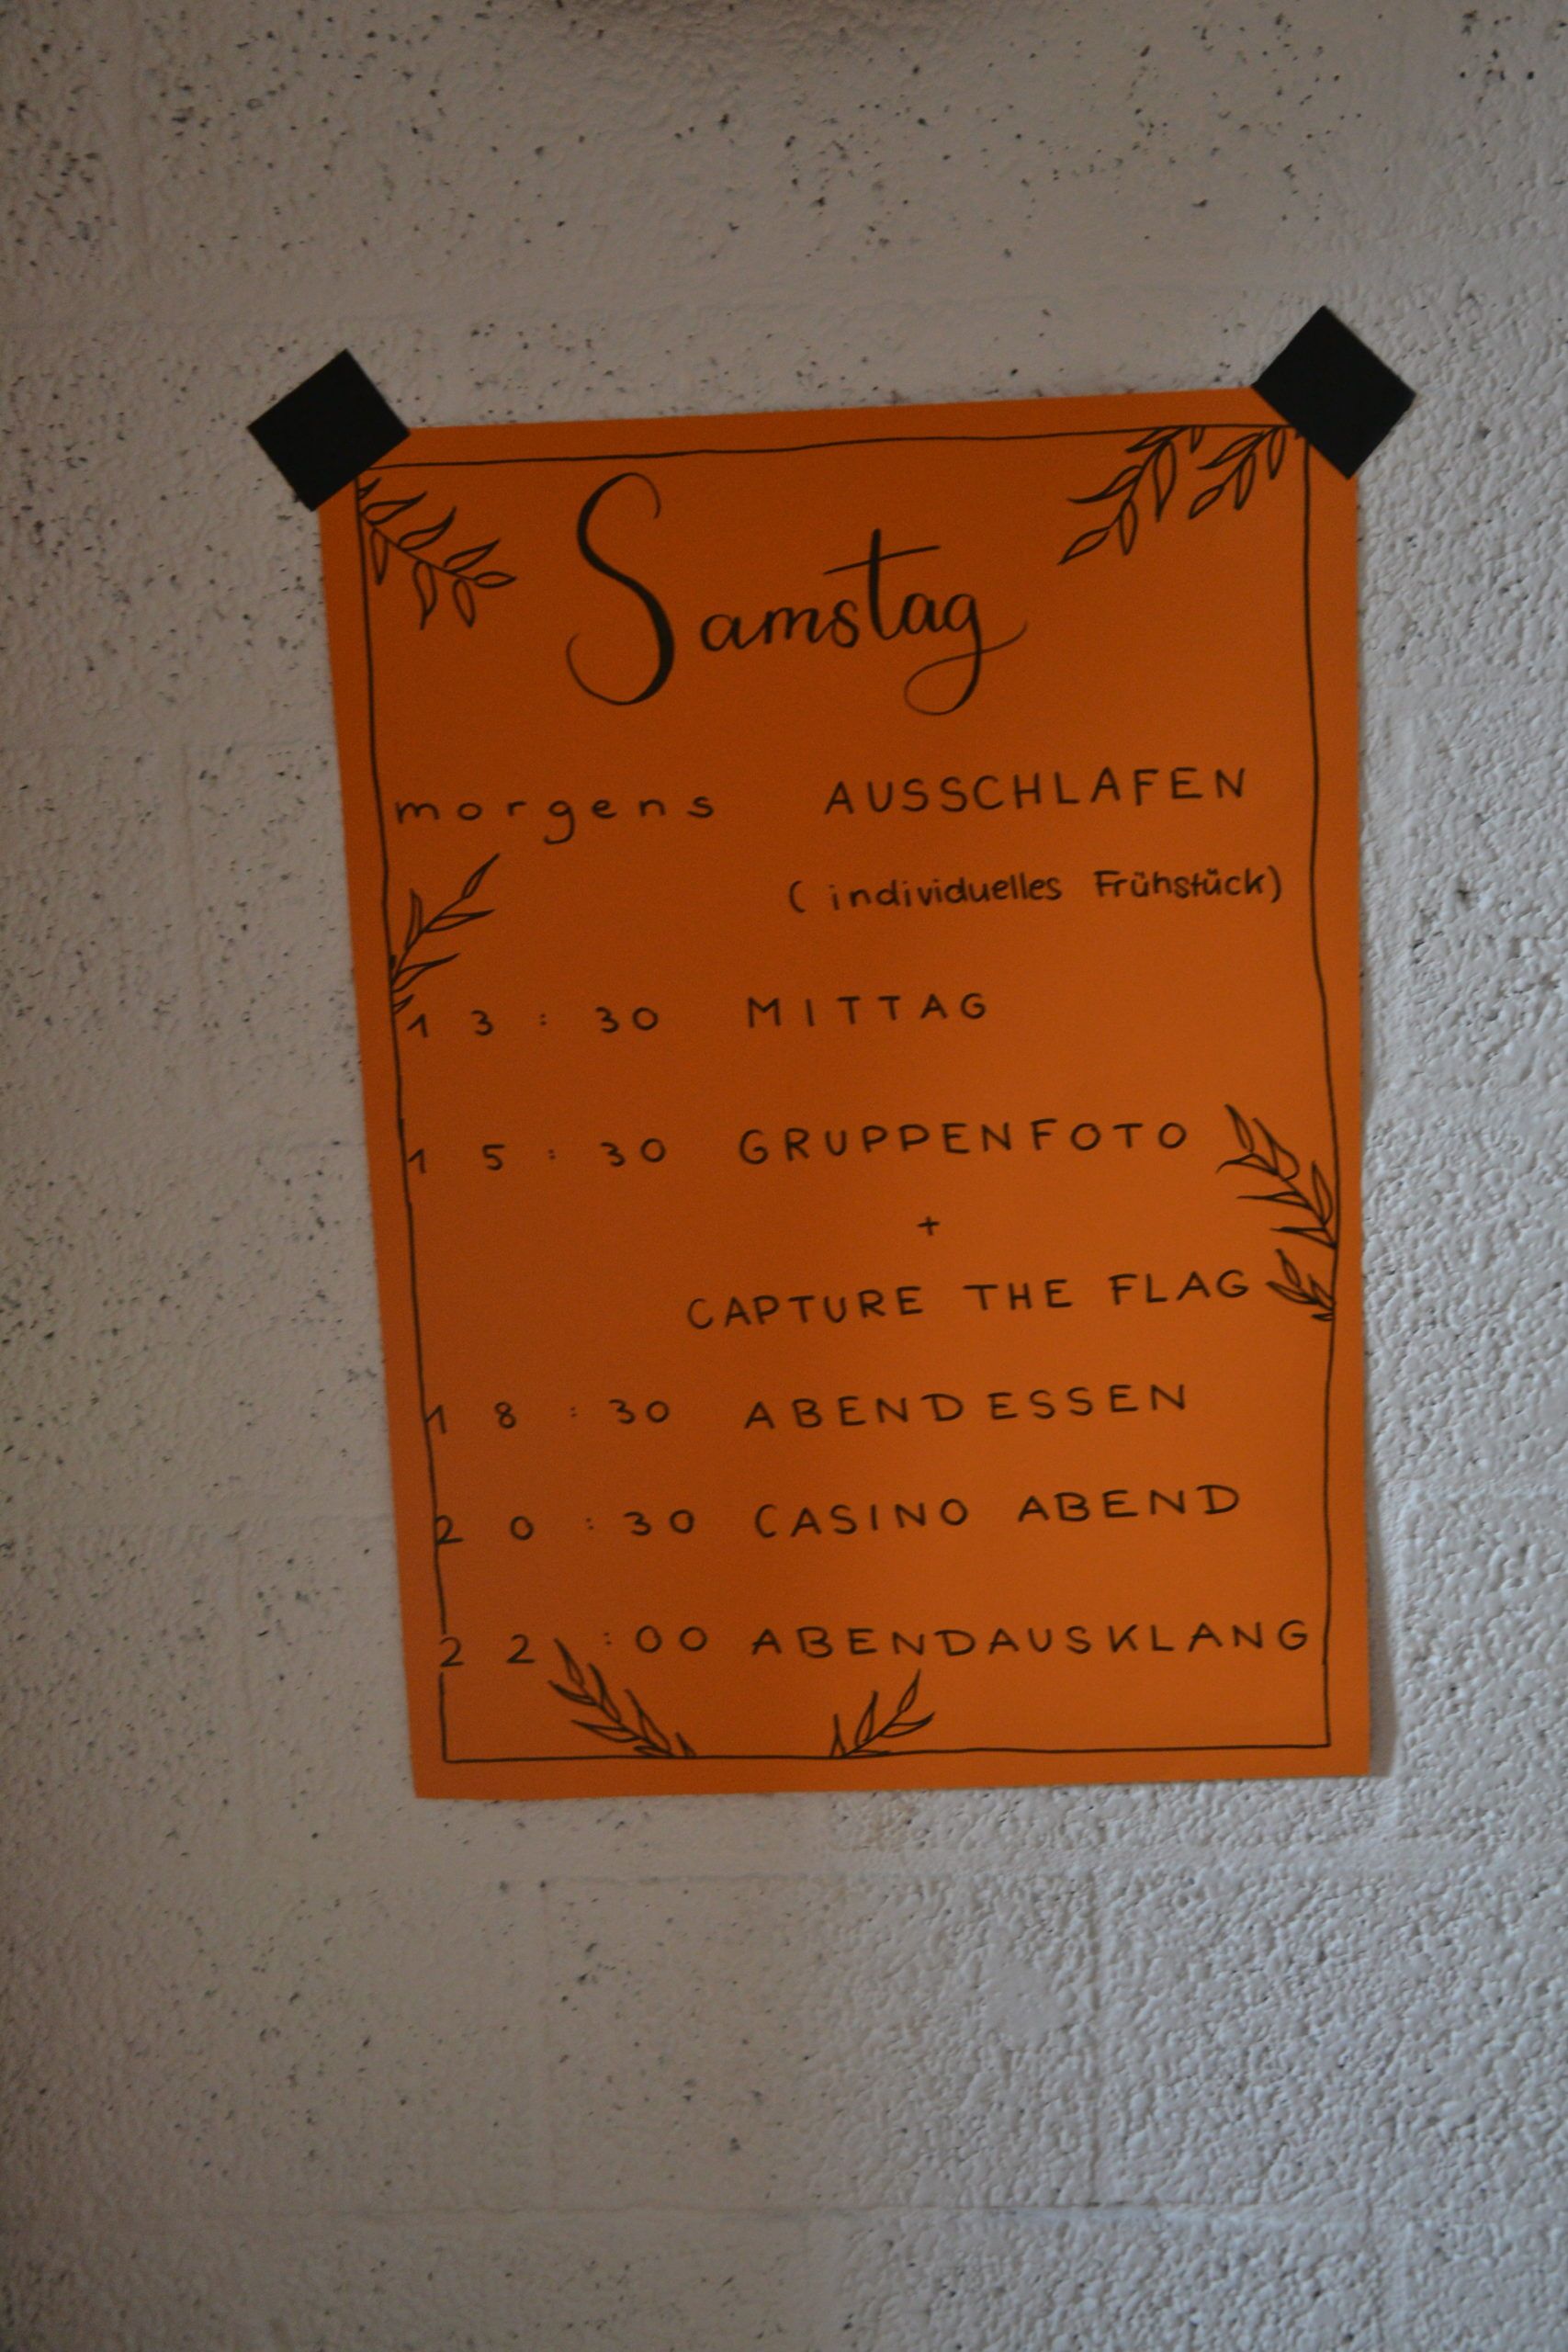 Samstag
morgens AUSSCHLAFEN
(individuelles Frühstück)
13:30 MITTAG
15:30 GRUPPENFOTO
+
CAPTURE THE FLAG
18:30 ABENDESSEN
20:30 CASINO ABEND
22:00 ABENDAUSKLANG